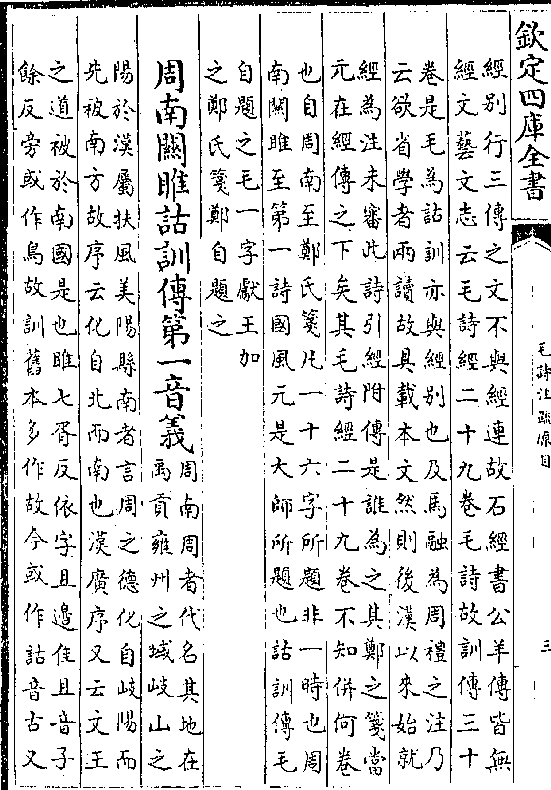 欽定四庫全書
毛詩注疏原目
三
經別行三傳之文不與經連故石經書公羊傳皆無
經文藝文志云毛詩經二十九卷毛詩故訓傳三十
卷是毛為詁訓亦與經別也及馬融為周禮之注乃
云欲省學者兩讀故具載本文然則後漢以來始就
經為注未審此詩引經附傳是誰為之其鄭之箋當
元在經傳之下矣其毛詩經二十九卷不知併何卷
也自周南至鄭氏箋凡一十六字所題非一時也周
南關雎至第一詩國風元是大師所題也詁訓傳毛
自題之毛一字獻王加
之鄭氏箋鄭自題之
周南關雎詁訓傳第一音義
周南周者代名其地在
禹貢雍州之域岐山之
陽於漢屬扶風美陽縣南者言周之德化自岐陽而
先被南方故序云化自北而南也漢廣序又云文王
之道被於南國是也雎七胥反依字且邊隹且音子
餘反旁或作鳥故訓舊本多作故今或作詁音古又